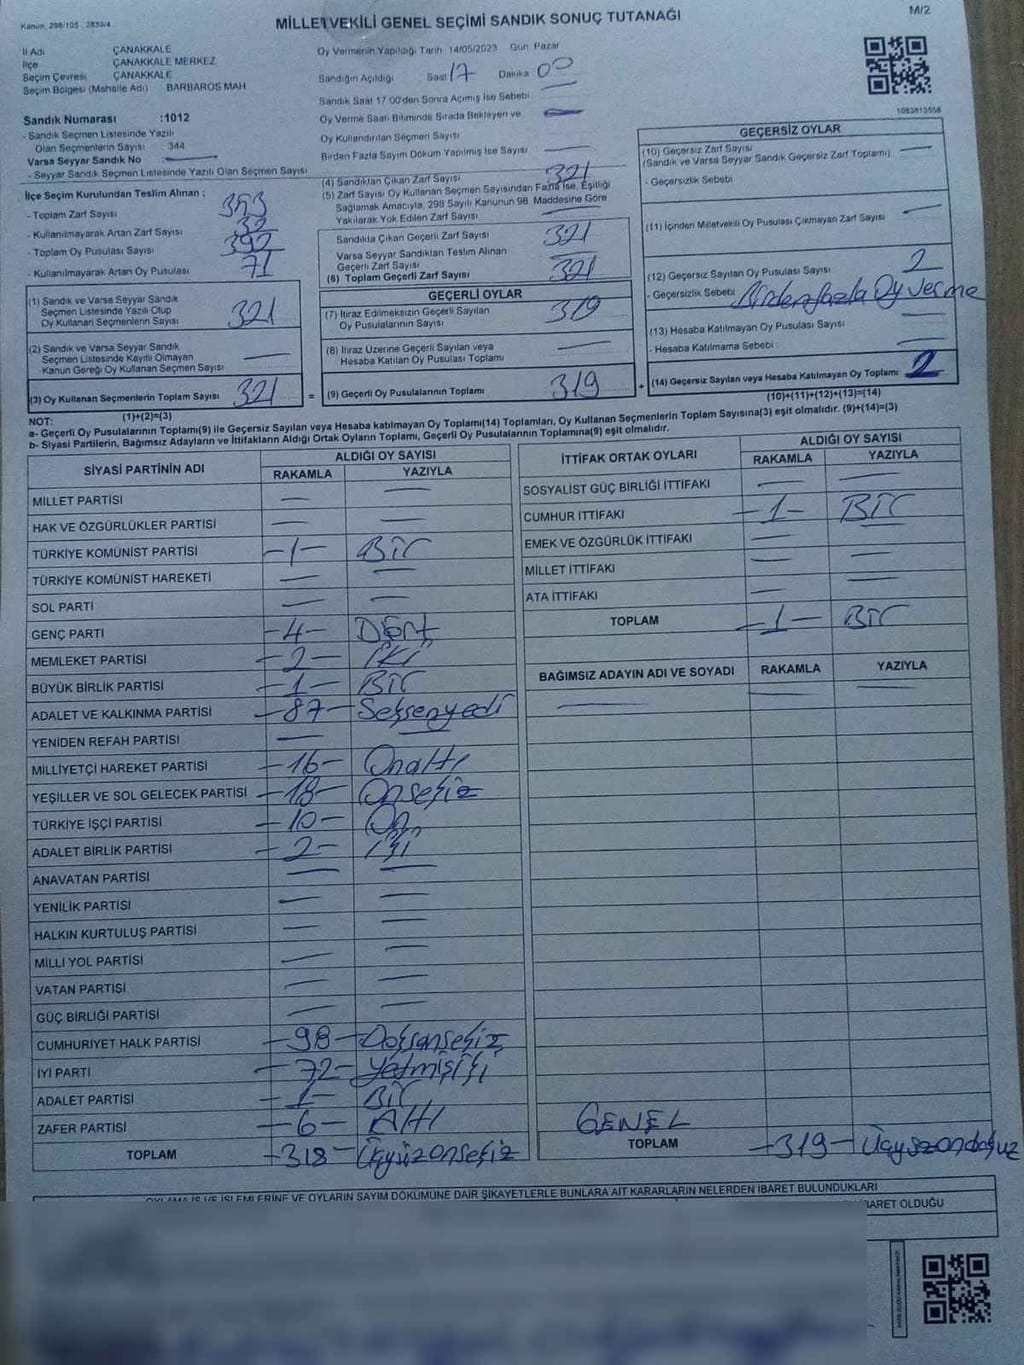 Kanun, 298/105 , 2839/4
MİLLETVEKİLİ GENEL SEÇİMİ SANDIK SONUÇ TUTANAĞI
M/2
İl Adı ÇANAKKALE
İlçe ÇANAKKALE MERKEZ
Seçim Çevresi ÇANAKKALE
Seçim Bölgesi (Mahalle Adı) BARBAROS MAH.
Sandık Numarası :1012
- Sandık Seçmen Listesinde Yazılı
Olan Seçmenlerin Sayısı 344
Varsa Seyyar Sandık No
- Seyyar Sandık Seçmen Listesinde Yazılı Olan Seçmen Sayısı
Oy Vermenin Yapıldığı Tarih 14/05/2023 Gün Pazar
Sandığın Açıldığı Saat 17 Dakika 00
Sandık Saat 17:00'den Sonra Açımış İse Sebebi
Oy Verme Saati Bitiminde Sırada Bekleyen ve
Oy Kullandırılan Seçmen Sayısı
Birden Fazla Sayım Döküm Yapılmış İse Sayısı
İlçe Seçim Kurulundan Teslim Alınan ;
- Toplam Zarf Sayısı 353
- Kullanılmayarak Artan Zarf Sayısı 32
- Toplam Oy Pusulası Sayısı 392
- Kullanılmayarak Artan Oy Pusulası 71
(1) Sandık ve Varsa Seyyar Sandık
Seçmen Listesinde Yazılı Olup
Oy Kullanan Seçmenlerin Sayısı 321
(2) Sandık ve Varsa Seyyar Sandık
Seçmen Listesinde Kayıtlı Olmayan
Kanun Gereği Oy Kullanan Seçmen Sayısı
(3) Oy Kullanan Seçmenlerin Toplam Sayısı 321
(1)+(2)=(3)
(4) Sandıktan Çıkan Zarf Sayısı 321
(5) Zarf Sayısı Oy Kullanan Seçmen Sayısından Fazla İse, Eşitliği
Sağlamak Amacıyla, 298 Sayılı Kanunun 98. Maddesine Göre
Yakılarak Yok Edilen Zarf Sayısı
Sandıkta Çıkan Geçerli Zarf Sayısı 321
Varsa Seyyar Sandıktan Teslim Alınan
Geçerli Zarf Sayısı
(6) Toplam Geçerli Zarf Sayısı 321
GEÇERLİ OYLAR
(7) İtiraz Edilmeksizin Geçerli Sayılan
Oy Pusulalarının Sayısı 319
(8) İtiraz Üzerine Geçerli Sayılan veya
Hesaba Katılan Oy Pusulası Toplamı
= (9) Geçerli Oy Pusulalarının Toplamı 319
GEÇERSİZ OYLAR
(10) Geçersiz Zarf Sayısı
(Sandık ve Varsa Seyyar Sandık Geçersiz Zarf Toplamı)
- Geçersizlik Sebebi
(11) İçinden Milletvekili Oy Pusulası Çıkmayan Zarf Sayısı
(12) Geçersiz Sayılan Oy Pusulası Sayısı 2
- Geçersizlik Sebebi Birdenfazla Oy verme
(13) Hesaba Katılmayan Oy Pusulası Sayısı
- Hesaba Katılmama Sebebi :
+ (14) Geçersiz Sayılan veya Hesaba Katılmayan Oy Toplamı 2
(10)+(11)+(12)+(13)=(14)
NOT:
a- Geçerli Oy Pusulalarının Toplamı(9) ile Geçersiz Sayılan veya Hesaba katılmayan Oy Toplamı(14) Toplamları, Oy Kullanan Seçmenlerin Toplam Sayısına(3) eşit olmalıdır. (9)+(14)=(3)
b- Siyasi Partilerin, Bağımsız Adayların ve İttifakların Aldığı Ortak Oyların Toplamı, Geçerli Oy Pusulalarının Toplamına(9) eşit olmalıdır.
SİYASİ PARTİNİN ADI ALDIĞI OY SAYISI
RAKAMLA YAZIYLA
MİLLET PARTİSİ
HAK VE ÖZGÜRLÜKLER PARTİSİ
TÜRKİYE KOMÜNİST PARTİSİ -1- Bir
TÜRKİYE KOMÜNİST HAREKETİ
SOL PARTİ
GENÇ PARTİ -4- Dört
MEMLEKET PARTİSİ -2- İki
BÜYÜK BİRLİK PARTİSİ -1- Bir
ADALET VE KALKINMA PARTİSİ -87- Seksenyedi
YENİDEN REFAH PARTİSİ
MİLLİYETÇİ HAREKET PARTİSİ -16- Onaltı
YEŞİLLER VE SOL GELECEK PARTİSİ -18- Onsekiz
TÜRKİYE İŞÇİ PARTİSİ -10- On
ADALET BİRLİK PARTİSİ -2- İki
ANAVATAN PARTİSİ
YENİLİK PARTİSİ
HALKIN KURTULUŞ PARTİSİ
MİLLİ YOL PARTİSİ
VATAN PARTİSİ
GÜÇ BİRLİĞİ PARTİSİ
CUMHURİYET HALK PARTİSİ -98- Doksansekiz
İYİ PARTİ -72- Yetmişiki
ADALET PARTİSİ -1- Bir
ZAFER PARTİSİ -6- Altı
TOPLAM -318- Üçyüzonsekiz
İTTİFAK ORTAK OYLARI ALDIĞI OY SAYISI
RAKAMLA YAZIYLA
SOSYALİST GÜÇ BİRLİĞİ İTTİFAKI
CUMHUR İTTİFAKI -1- Bir
EMEK VE ÖZGÜRLÜK İTTİFAKI
MİLLET İTTİFAKI
ATA İTTİFAKI
TOPLAM -1- Bir
BAĞIMSIZ ADAYIN ADI VE SOYADI RAKAMLA YAZIYLA
GENEL
TOPLAM -319- Üçyüzondokuz
OYLAMA İŞ VE İŞLEMLERİNE VE OYLARIN SAYIM DÖKÜMÜNE DAİR ŞİKAYETLERLE BUNLARA AİT KARARLARIN NELERDEN İBARET BULUNDUKLARI
İBARET OLDUĞU